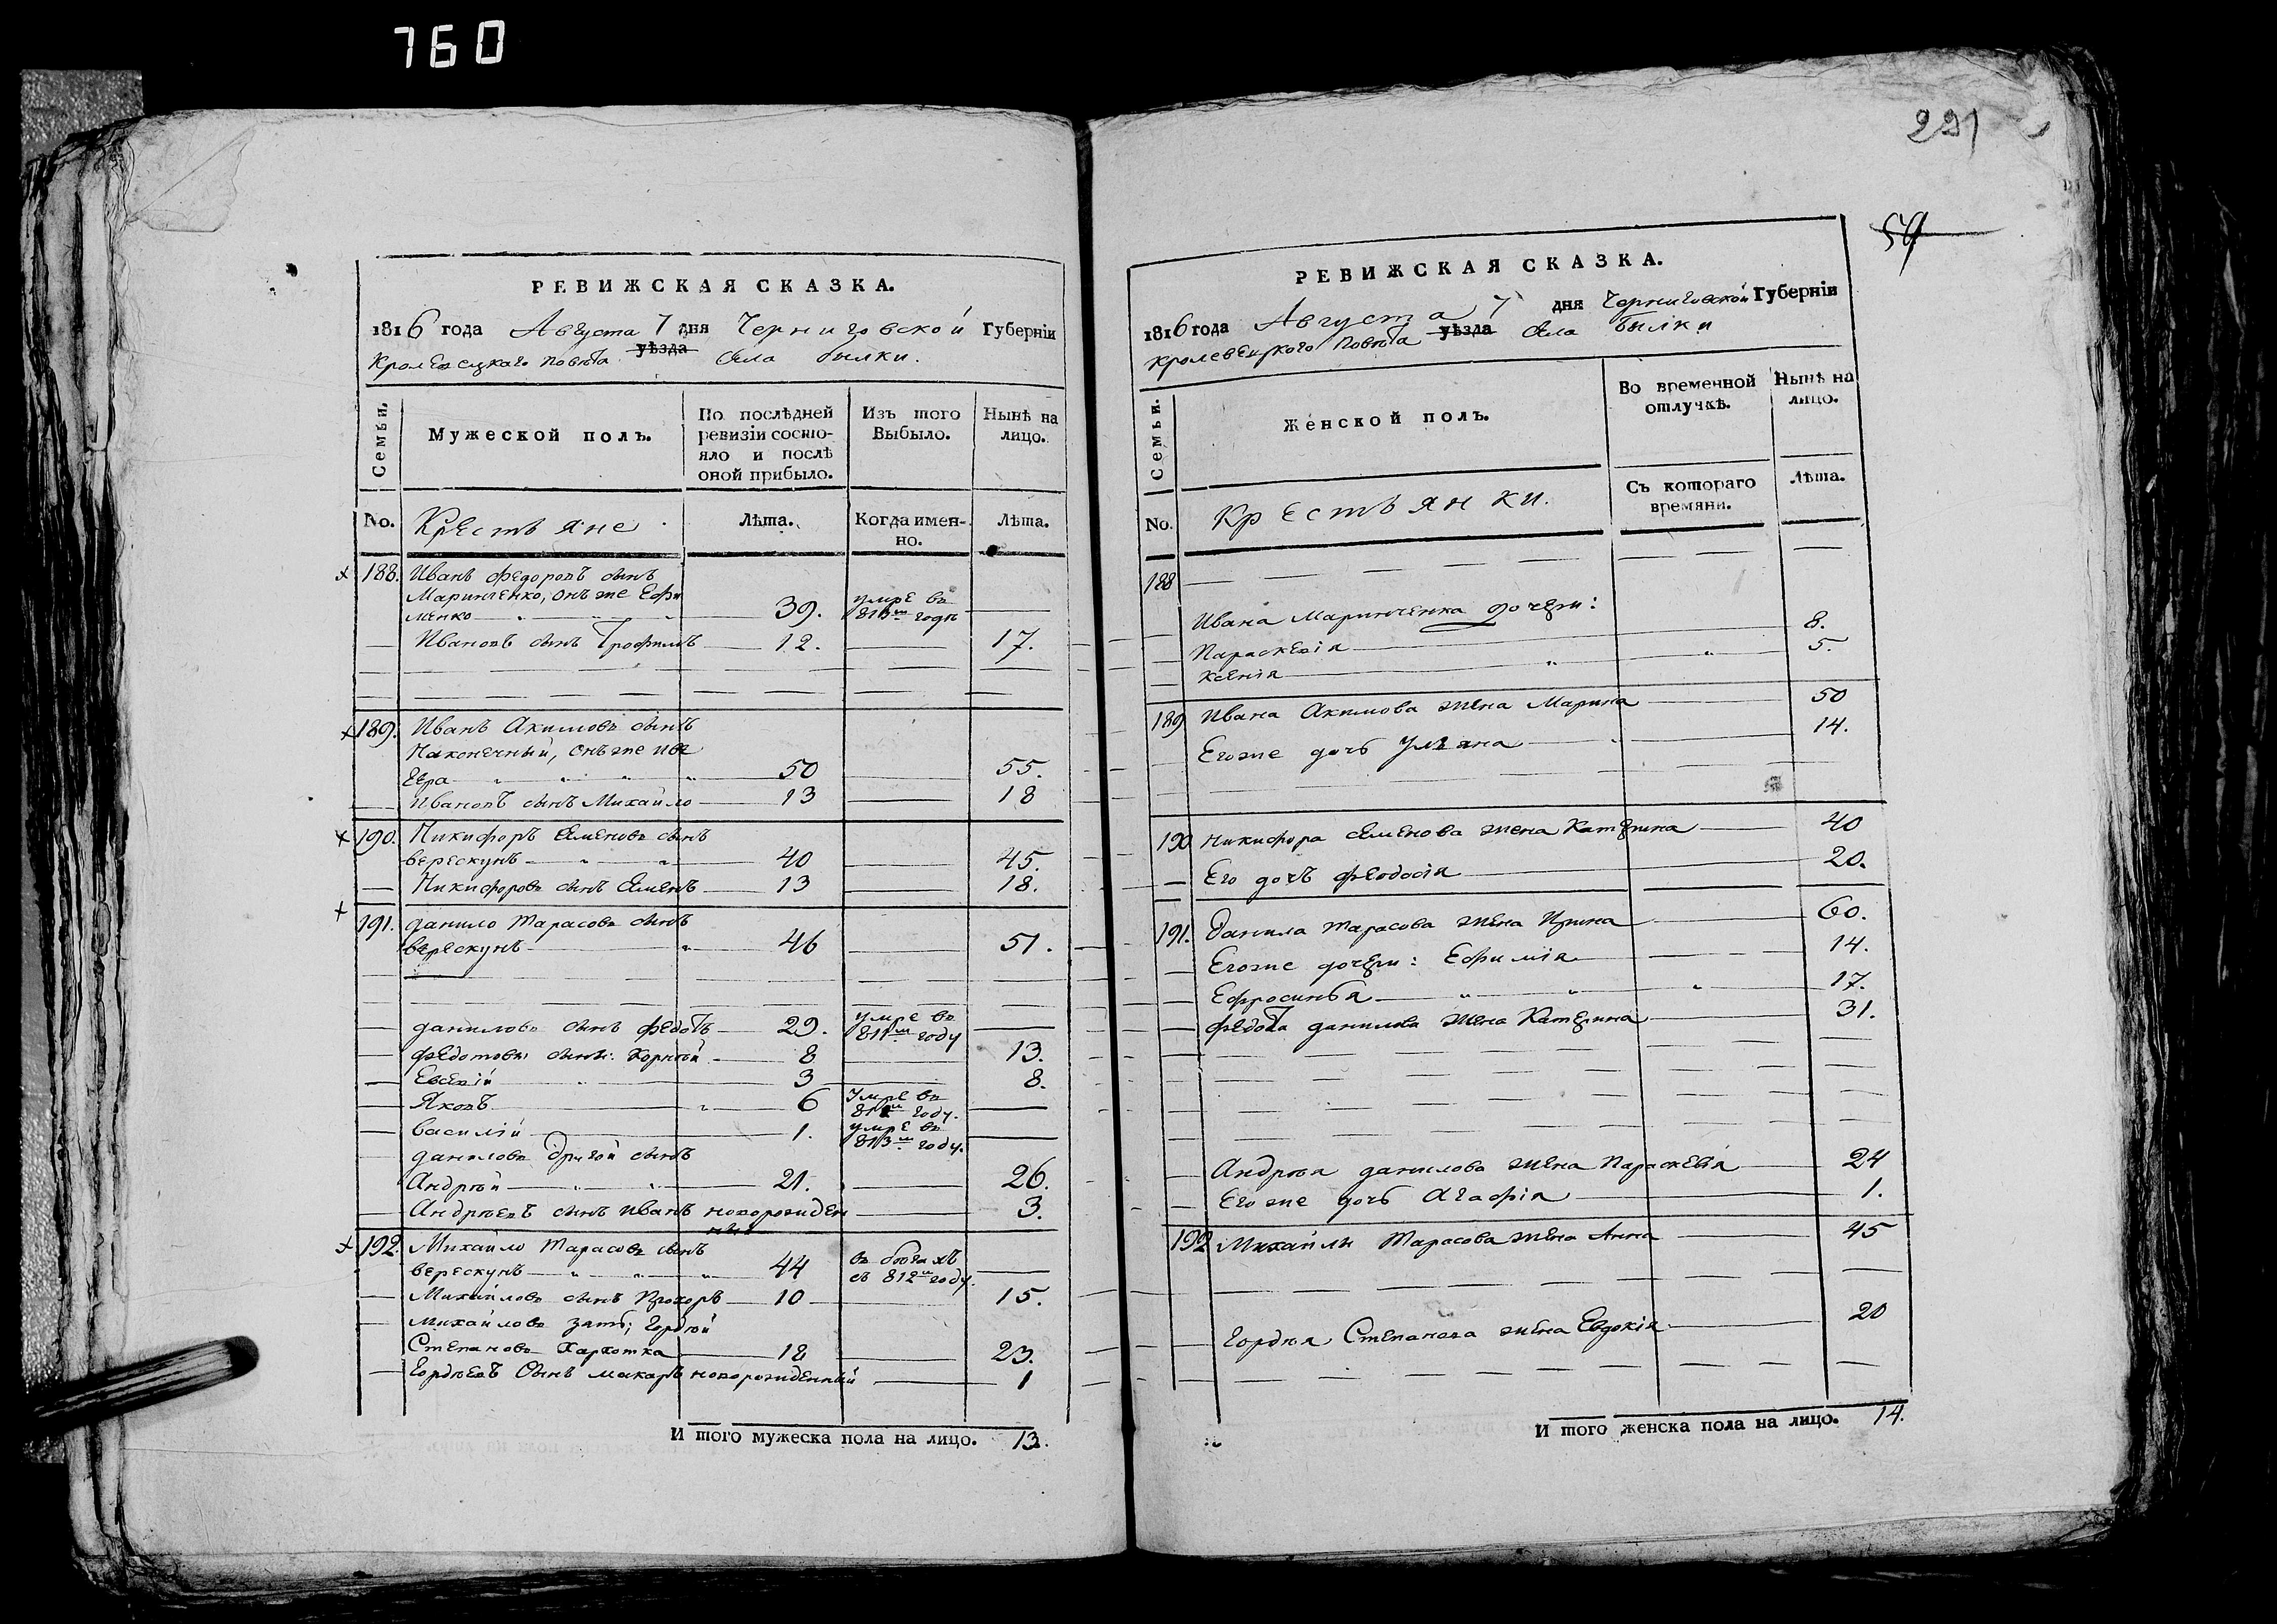 760
РЕВИЖСКАЯ СКАЗКА.
1816 года Августа 7 дня Черниговской Губерніи
Кролевецкаго повѣта уѣзда Села Былки.
Семьи.
Мужеской полъ.
По послѣдней ревизіи состояло и послѣ оной прибыло.
Изъ того Выбыло.
Нынѣ на лицо.
No. Крестьяне
Лѣта.
Когда именно.
Лѣта.
188. Иванъ Федоровъ сынъ
Маринченко, онъ же Ефи
менко 39. умре въ 813м годѣ
Ивановъ сынъ Трофимъ 12. 17.
189. Иванъ Акимовъ сынъ
Наконечный, онъ же
50 55.
Ивановъ сынъ Михайло 13 18
190. Никифоръ Семеновъ сынъ
Верескунъ 40 45.
Никифоровъ сынъ Семенъ 13 18.
191. Данило Тарасовъ сынъ
Верескунъ 46 51.
Даниловъ сынъ Федотъ 29. умре въ 811м году
Федотовы сыны: Корнѣй 8 13.
Евсевій 3 8.
Яковъ 6 умре въ году.
Василій 1. умре въ 813м году.
Даниловъ другой сынъ
Андрѣй 21. 26.
Андрѣевъ сынъ Иванъ новорожден
ный 3.
192. Михайло Тарасовъ сынъ
Верескунъ 44 въ бѣгахъ съ 812м году.
Михайловъ сынъ Прохоръ 10 15.
Михайловъ зять, Гордѣй
Степановъ Харкотка 18 23.
Гордѣевъ Сынъ Макаръ новорожденный 1
И того мужеска пола на лицо. 13.
221
54
РЕВИЖСКАЯ СКАЗКА.
1816 года Августа 7 дня Черниговской Губерніи
Кролевецкого Повѣта уѣзда Села Былки
Семьи.
Женской полъ.
Во временной отлучкѣ.
Нынѣ на лицо.
No. Крестьянки.
Съ котораго времяни.
Лѣта.
188
Ивана Маринченка дочери:
Параскевія 8.
Ксенія 5.
189 Ивана Акимова жена Марина 50
Егоже дочь Ульяна 14.
190 Никифора Семенова жена Катерина 40
Его дочь Феодосія 20.
191. Данила Тарасова жена Ирина 60.
Егоже дочери: Ефимія 14.
Ефросинья 17.
Федота Данилова жена Катерина 31.
Андрѣя Данилова жена Параскевія 24
Его же дочь Агафія 1.
192 Михайлы Тарасова жена Анна 45
Гордѣя Степанова жена Евдокія 20
И того женска пола на лицо. 14.